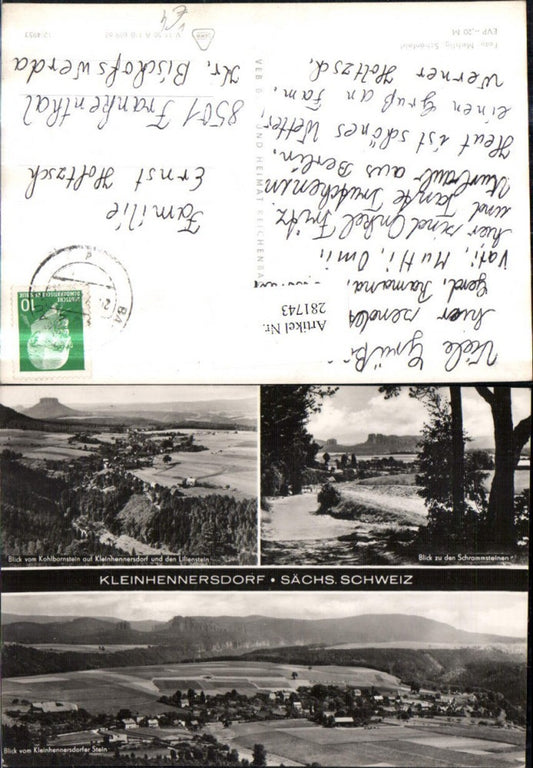 Viele Grüße
hier sendet
Gerd, Ramona,
Vati, Mutti, Omi,
hier sind Onkel Fritz
und Tante Trudchen in
Urlaub aus Berlin,
Heut ist schönes Wetter,
einen Gruß an Fam.
Werner Holtzsch.
Artikel Nr.
281743
UND HEIMAT REICHENBA
Familie
Ernst Holtzsch
8501 Frankenthal
Kr. Bischofswerda
12/4953
EVP -,20 M
10
DEUTSCHE
DEMOKRATISCHE REPUBLIK
Blick vom Kohlbornstein auf Kleinhennersdorf und den Lilienstein
Blick zu den Schrammsteinen
KLEINHENNERSDORF • SÄCHS. SCHWEIZ
Blick vom Kleinhennersdorfer Stein